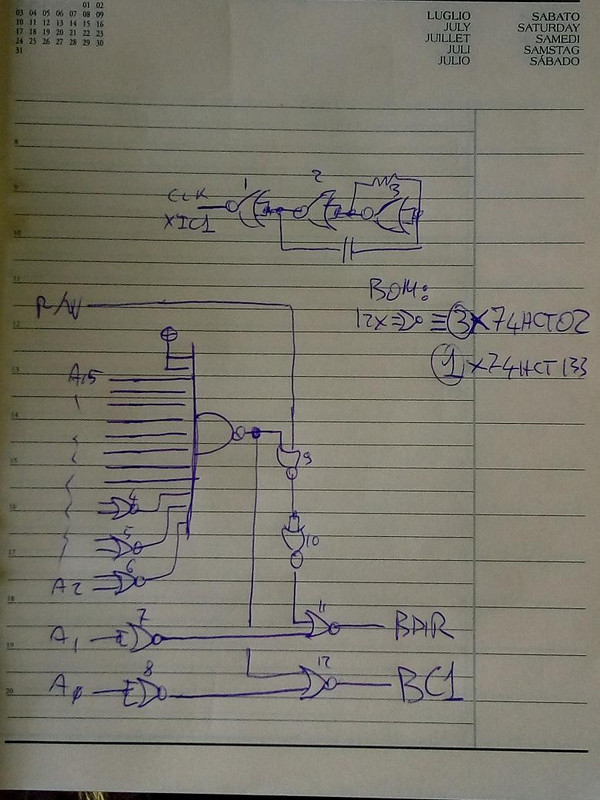 01 02
03 04 05 06 07 08 09
10 11 12 13 14 15 16
17 18 19 20 21 22 23
24 25 26 27 28 29 30
31
LUGLIO SABATO
JULY SATURDAY
JUILLET SAMEDI
JULI SAMSTAG
JULIO SÁBADO
8
9
10
11
12
13
14
15
16
17
18
19
20
1 2 3
CLK
XIC1
BOM:
12X ≡ 3X74HCT02
1X74HCT133
R/W
A15
9
4
5
10
6
A2
7
11
A1
BDIR
8
12
A0
BC1